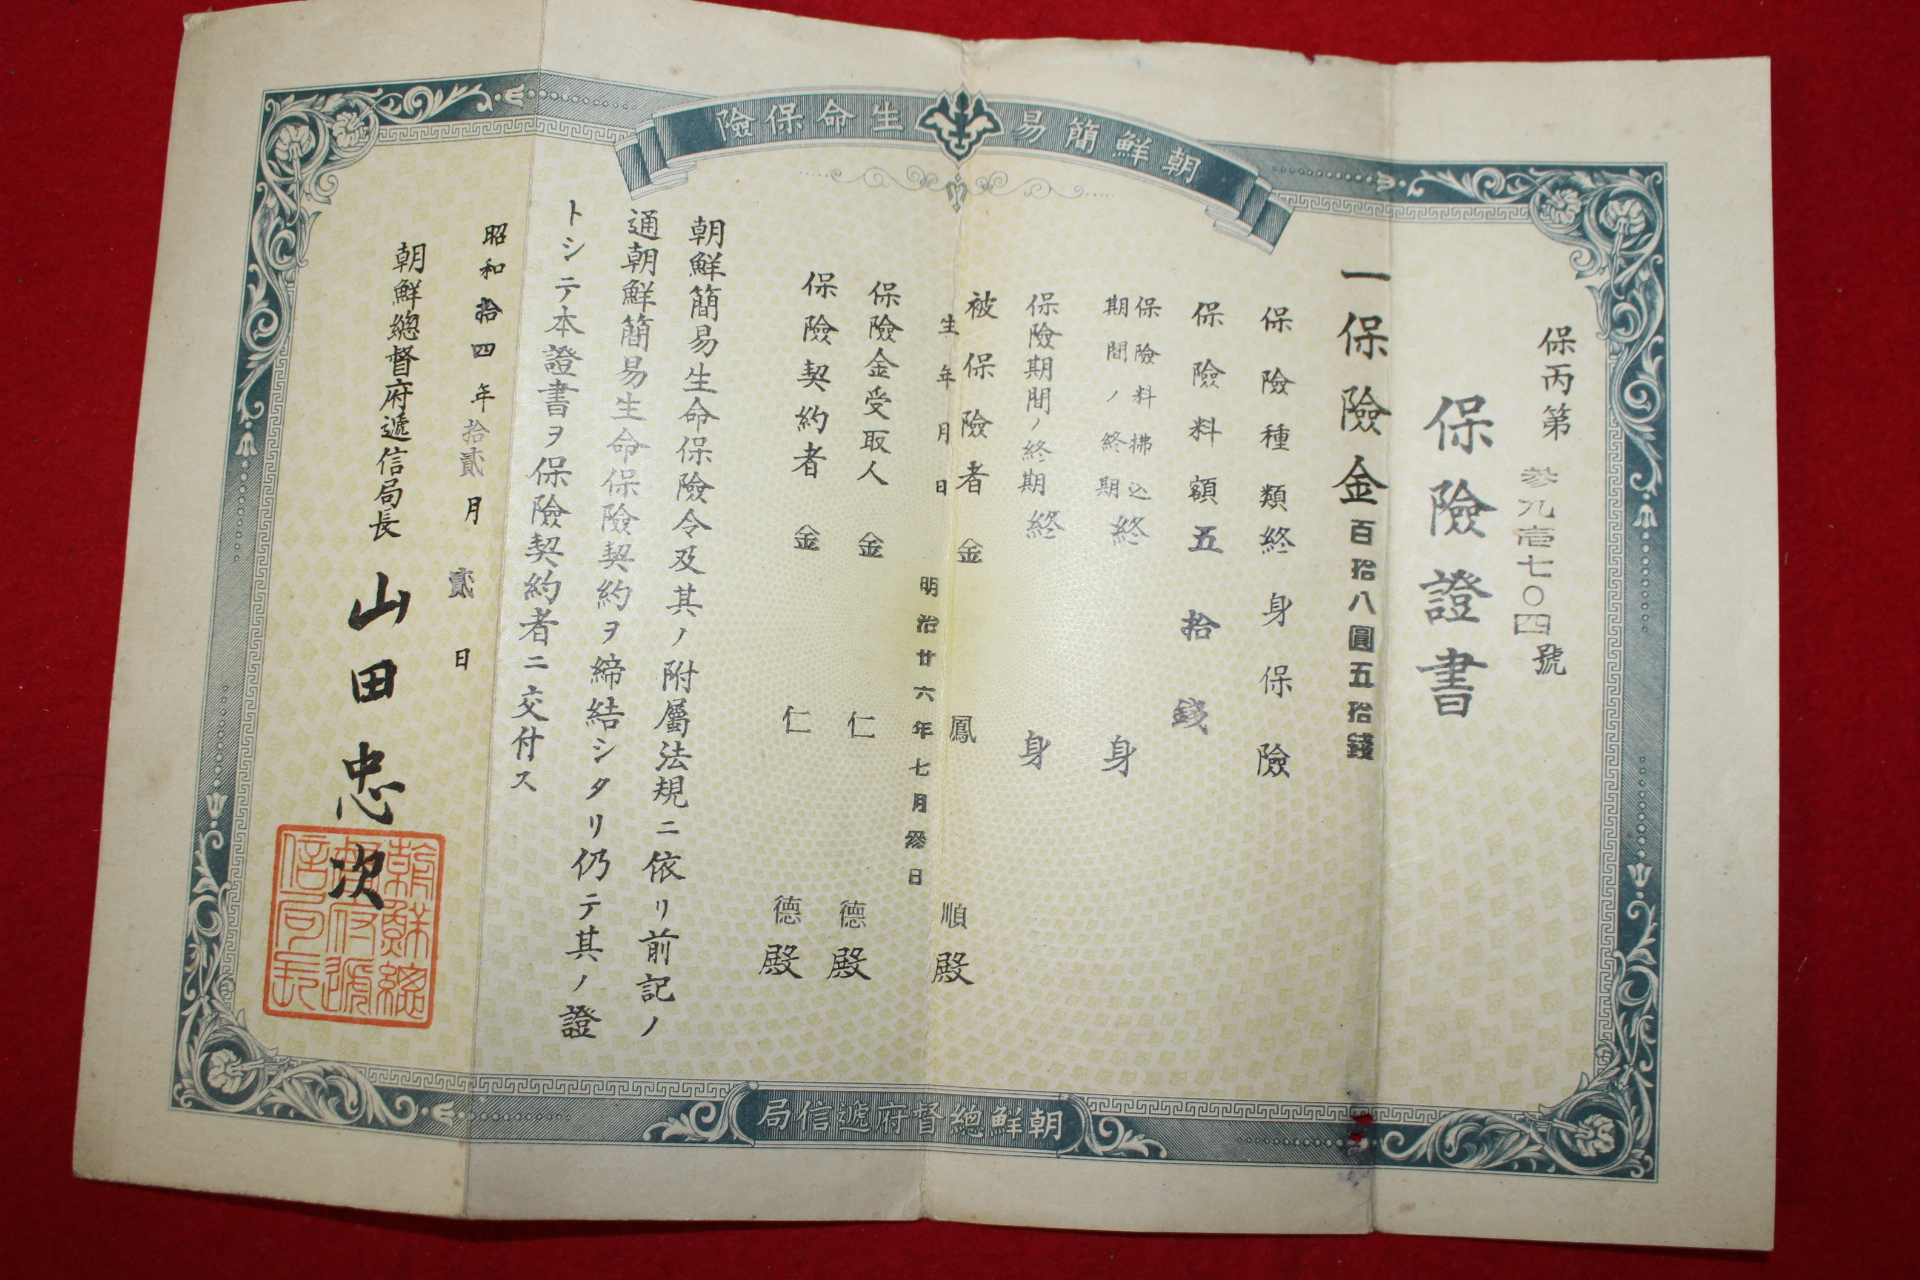 朝鮮簡易生命保險
保丙第參九壱七〇四號
保險證書
一保險金百拾八圓五拾錢
保險種類終身保險
保險料額五拾錢
保險料拂込
期間ノ終期終身
保險期間ノ終期終身
被保險者金鳳順殿
生年月日明治廿六年七月參日
保險金受取人金仁德殿
保險契約者金仁德殿
朝鮮簡易生命保險令及其ノ附屬法規ニ依リ前記ノ
通朝鮮簡易生命保險契約ヲ締結シタリ仍テ其ノ證
トシテ本證書ヲ保險契約者ニ交付ス
昭和拾四年拾貳月貳日
朝鮮總督府遞信局長山田忠次
朝鮮總
督府遞
信局長
朝鮮總督府遞信局